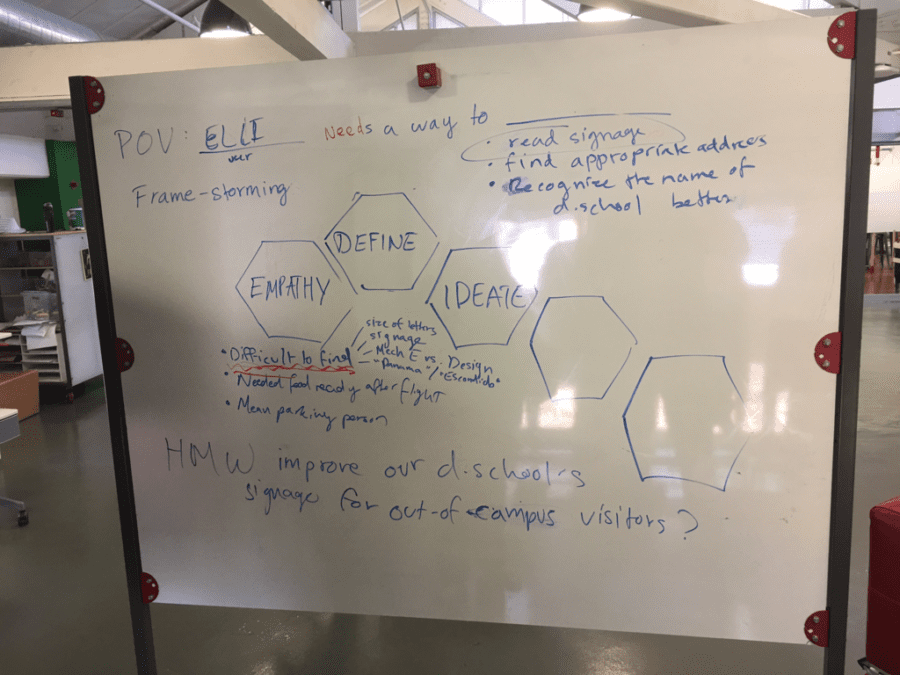 POV: ELLI Needs a way to
user
• read signage
• find appropriate address
• Recognize the name of
d.school better
Frame-storming
EMPATHY
DEFINE
IDEATE
• Difficult to find
size of letters
signage
Mech E vs. Design
"Panama" / "Escondido"
• Needed food ready after flight
• Mean parking person
HMW improve our d.school's
signage for out-of-campus visitors?